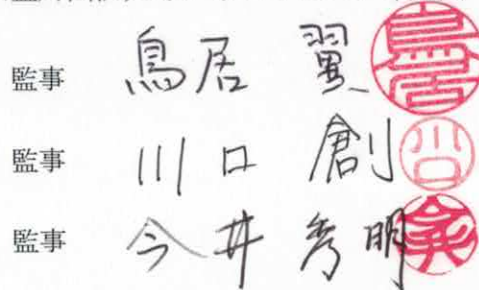 監事 鳥居 翼
監事 川口 創
監事 今井 秀明